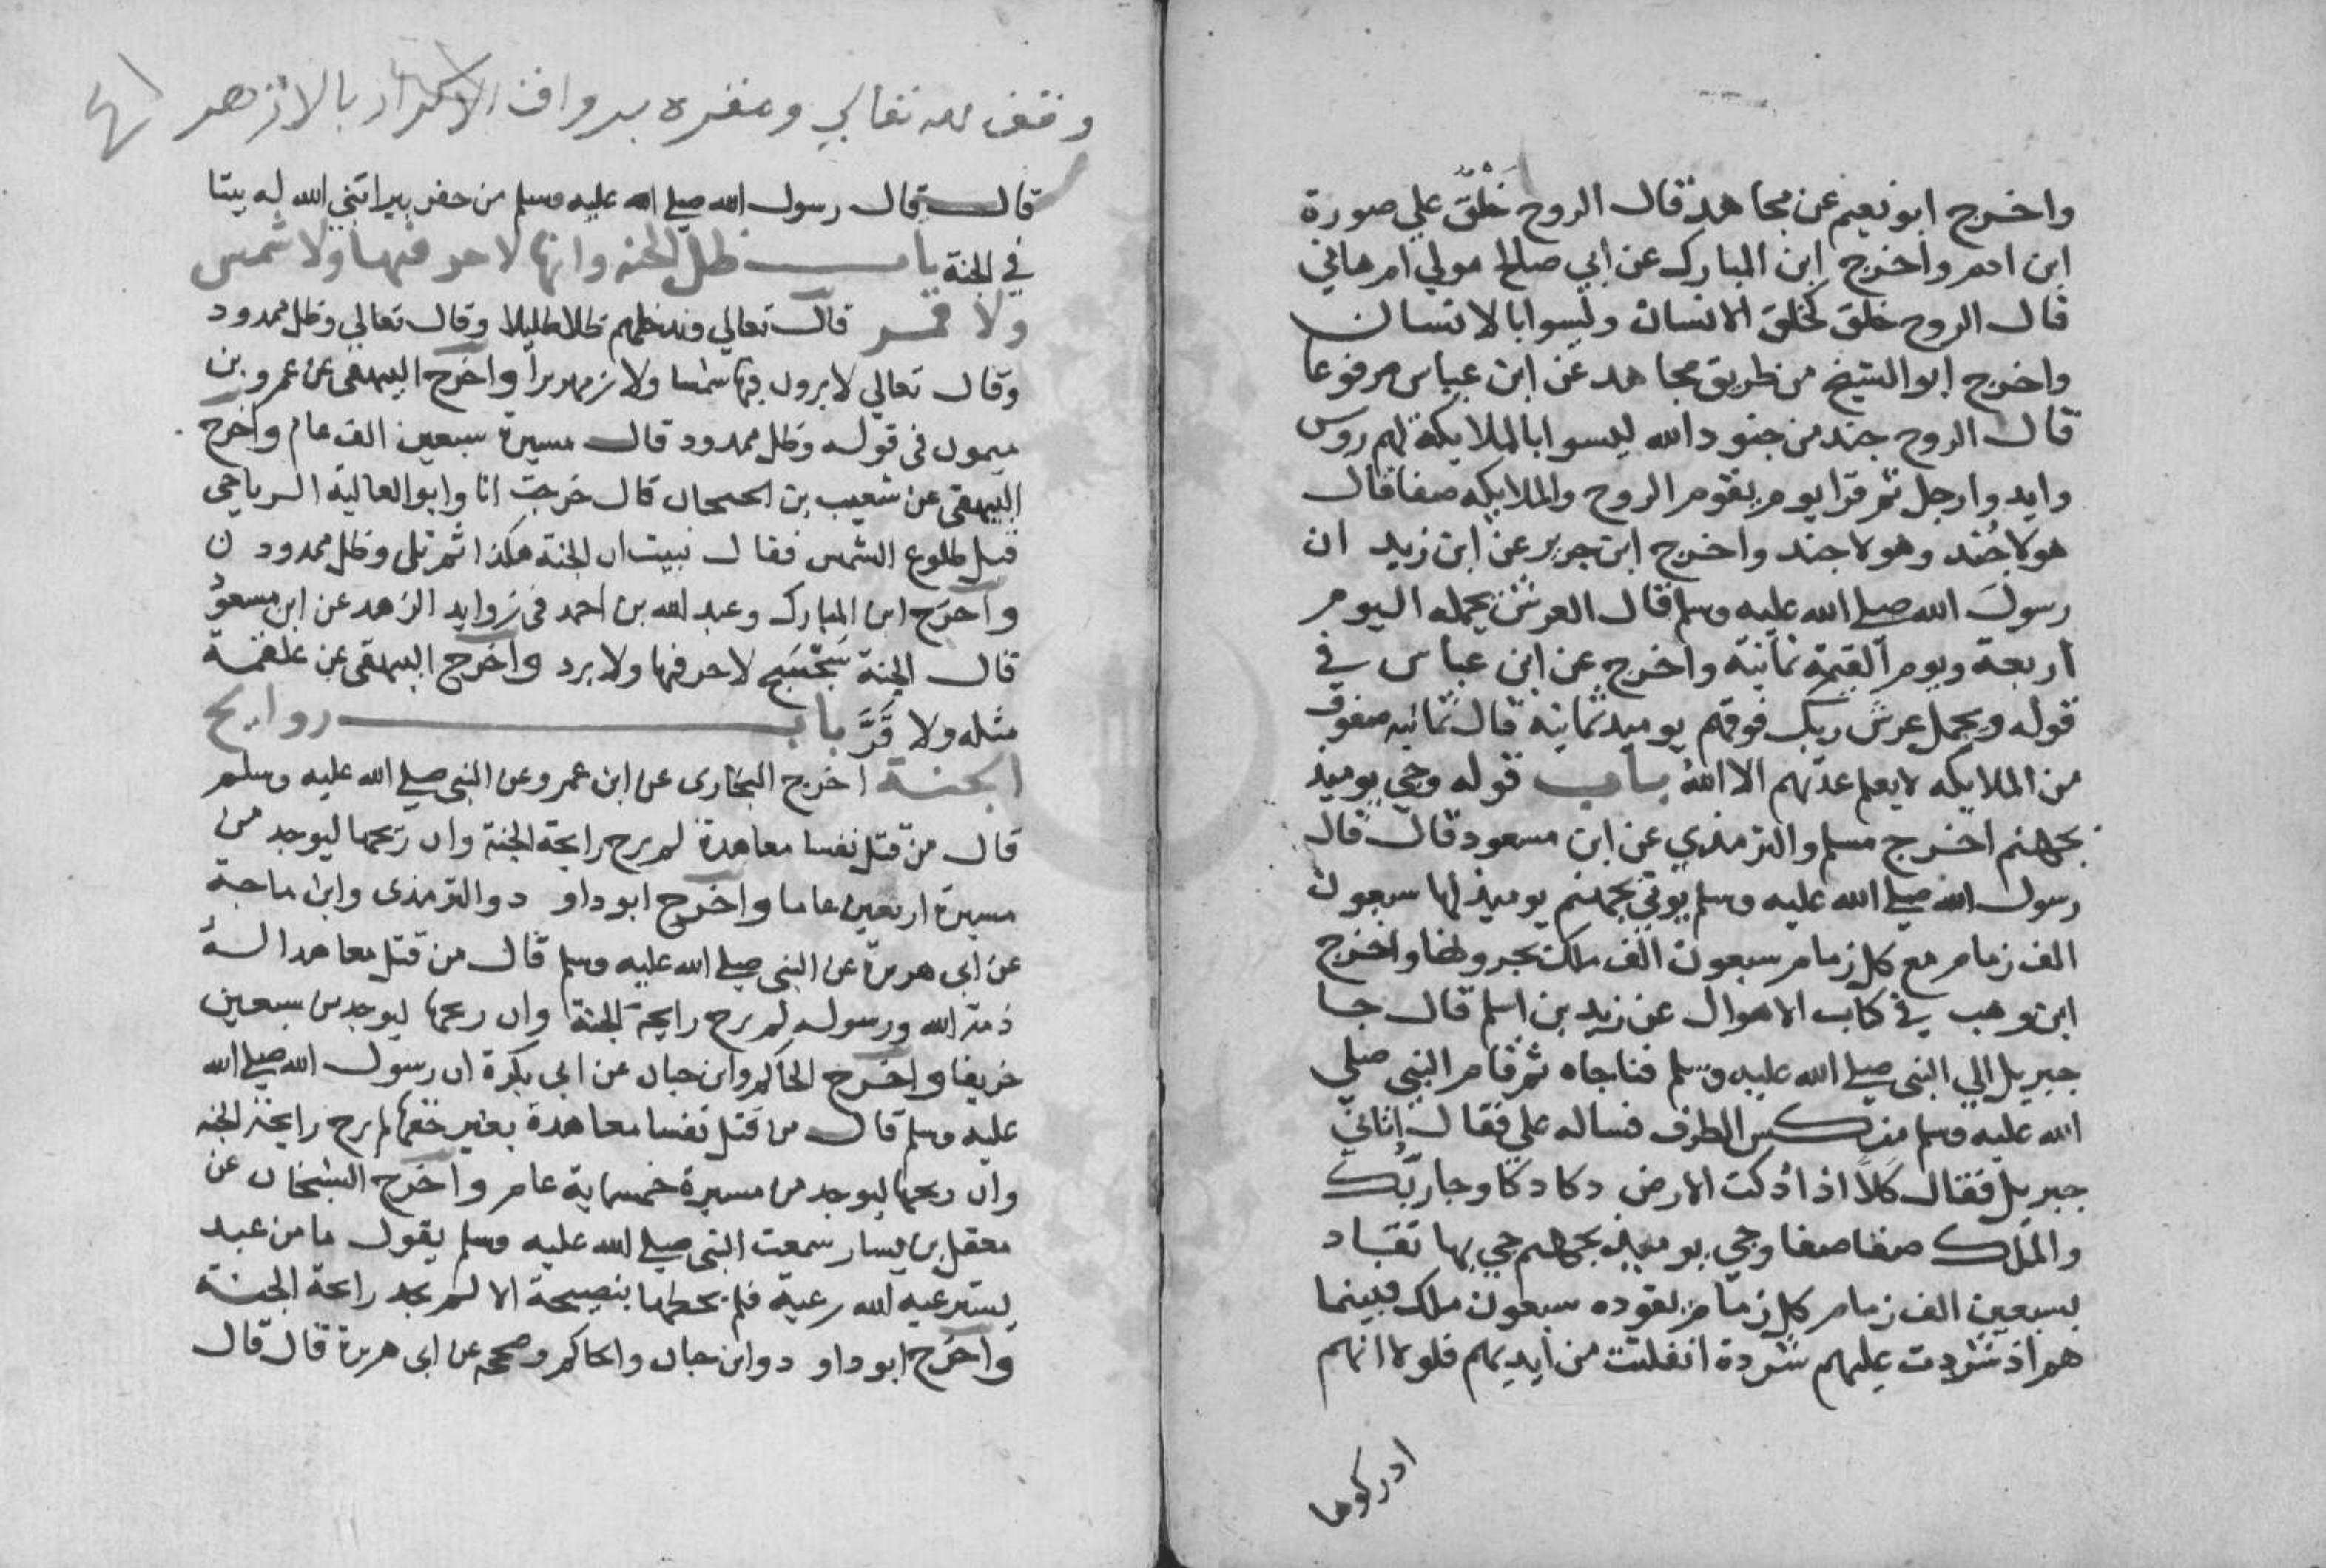 واخرج ابو نعيم عن مجاهد قال الروح خَلْقٌ علي صورة
ابن ادم واخرج ابن المبارك عن ابي صالح مولي ام هاني
قال الروح خلق كخلق الانسان وليسوا بالانسان
واخرج ابو الشيخ من طريق مجاهد عن ابن عباس مرفوعا
قال الروح جند من جنود الله ليسوا بالملايكة لهم روس
وايد وارجل ثم قرا يوم يقوم الروح والملايكه صفا قال
هولا جُند وهولا جند واخرج ابن جرير عن ابن زيد ان
رسول الله صلي الله عليه وسلم قال العرش يحمله اليوم
أربعة ويوم القيمة ثمانية واخرج عن ابن عباس في
قوله ويحمل عرش ربك فوقهم يوميذ ثمانية قال ثمانيه صفوف
من الملايكه لا يعلم عدتهم الا اللهُ باب قوله وجي يوميذ
بجهنم اخرج مسلم والترمذي عن ابن مسعود قال قال
رسول الله صلي الله عليه وسلم يوتي بجهنم يوميذ لها سبعون
الف زمام مع كل زمام سبعون الف ملك يجرونها واخرج
ابن وهب في كتاب الاهوال عن زيد بن اسلم قال جا
جبريل الي النبي صلي الله عليه وسلم فناجاه ثم قام النبي صلي
الله عليه وسلم منكس الطرف فساله علي فقال اتاني
جبريل فقال كلّا اذا دُكت الارض دكا دكا وجا ربّك
والملك صفا صفا وجي يوميذ بجهنم جي بها تقاد
بسبعين الف زمام كل زمام يقوده سبعون ملك فبينما
هم اذ شردت عليهم شردة انفلتت من ايديهم فلولا انهم
ادركوها
وقف لله تعالي ومقره برواق الاكراد بالازهر
قال قال رسول الله صلي الله عليه وسلم من حفر بيرا بني الله له بيتا
في الجنة باب ظل الجنه وانها لا حر فيها ولا شمس
ولا قمر قال تعالي وندخلهم ظلا ظليلا وقال تعالي وظل ممدود
وقال تعالي لا يرون فيها شمسا ولا زمهريرا واخرج البيهقى عن عمرو بن
ميمون فى قوله وظل ممدود قال مسيرة سبعين الف عام واخرج
البيهقى عن شعيب بن الحبحاب قال خرجت انا وابو العالية الرياحي
قبل طلوع الشمس فقال نبيت ان الجنة هكذا ثم تلى وظل ممدود
واخرج ابن المبارك وعبد الله بن احمد فى زوايد الزهد عن ابن مسعود
قال الجنة سَجْسَج لا حر فيها ولا برد واخرج البيهقى عن علقمة
مثله ولا قَرَّ باب روايح
الجنة اخرج البخارى عن ابن عمرو عن النبى صلي الله عليه وسلم
قال من قتل نفسا معاهدة لم يرح رايحة الجنة وان ريحها ليوجد من
مسيرة اربعين عاما واخرج ابو داود والترمذى وابن ماجة
عن ابى هريرة عن النبى صلي الله عليه وسلم قال من قتل معاهدا له
ذمة الله ورسوله لم يرح رايحة الجنة وان ريحها ليوجد من سبعين
خريفا واخرج الحاكم وابن حبان عن ابي بكرة ان رسول الله صلي الله
عليه وسلم قال من قتل نفسا معاهدة بغير حقها لم يرح رايحة الجنه
وان ريحها ليوجد من مسيرة خمسماية عام واخرج الشيخان عن
معقل بن يسار سمعت النبى صلي الله عليه وسلم يقول ما من عبد
يسترعيه الله رعية فلم يحطها بنصيحة الا لم يجد رايحة الجنة
واخرج ابو داود وابن حبان والحاكم وصححه عن ابى هريرة قال قال